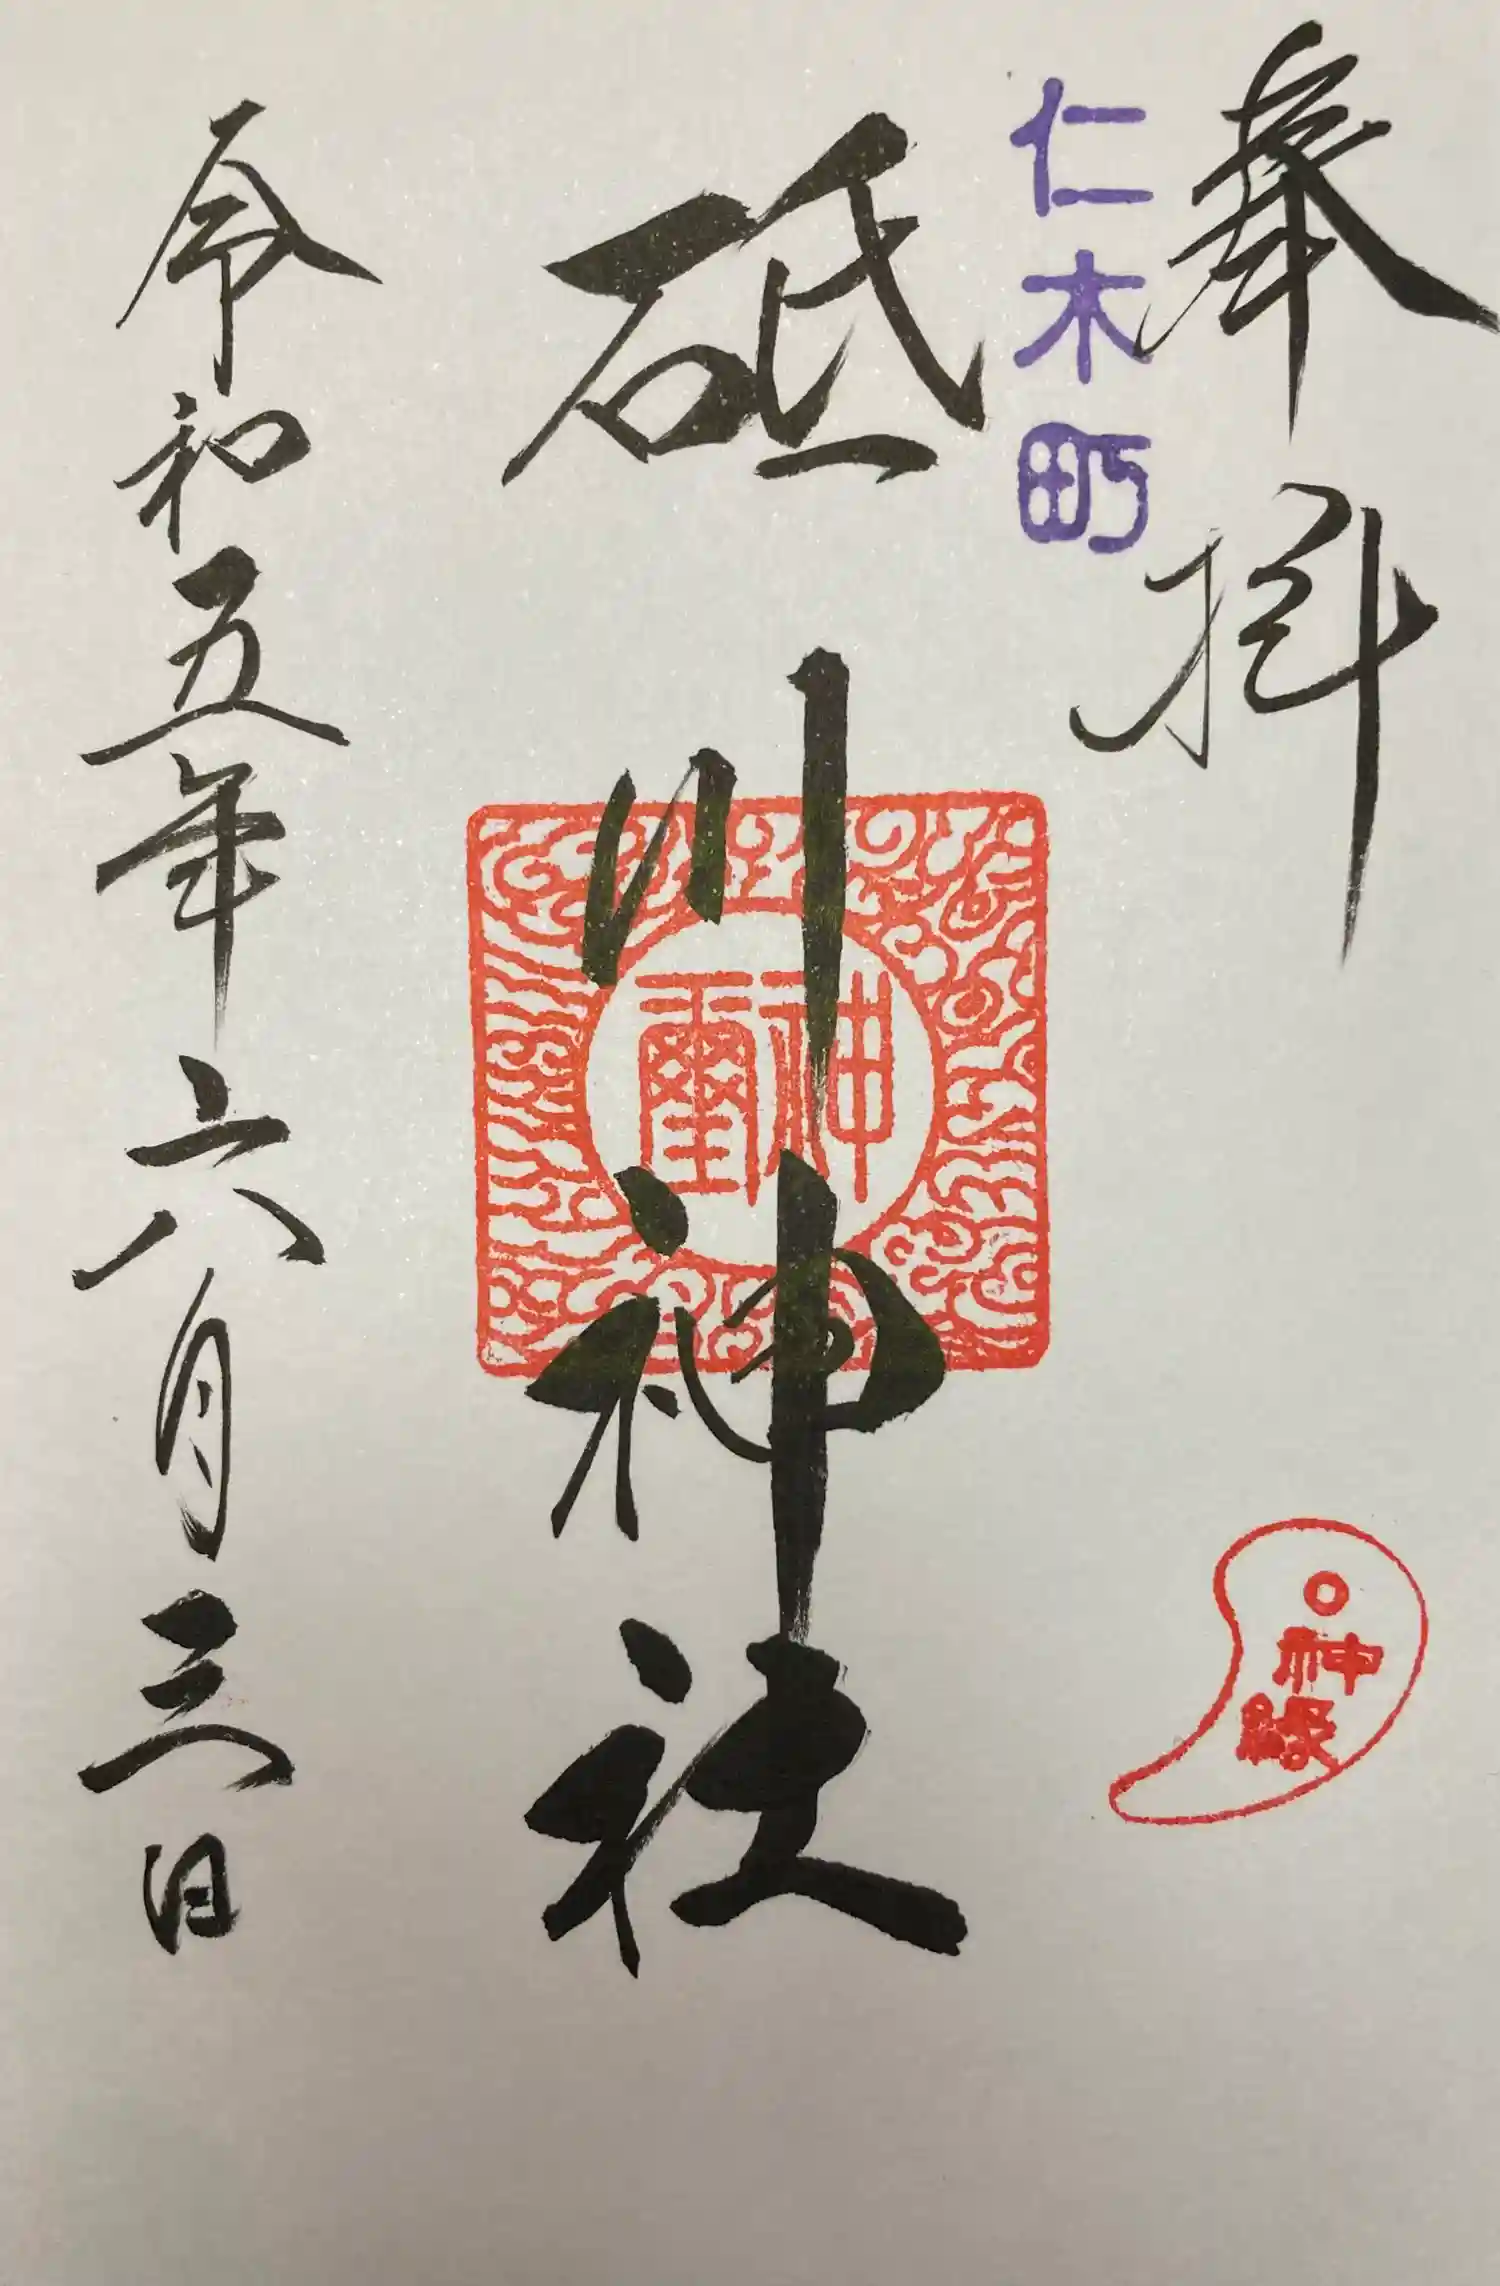 奉拝
仁木町
砥川神社
神璽
令和五年六月三日
神縁